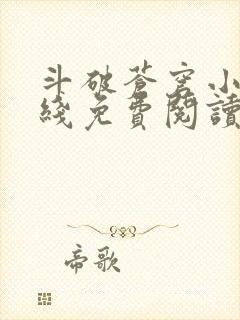 斗破苍穹小
綫免費閱讀
帝歌